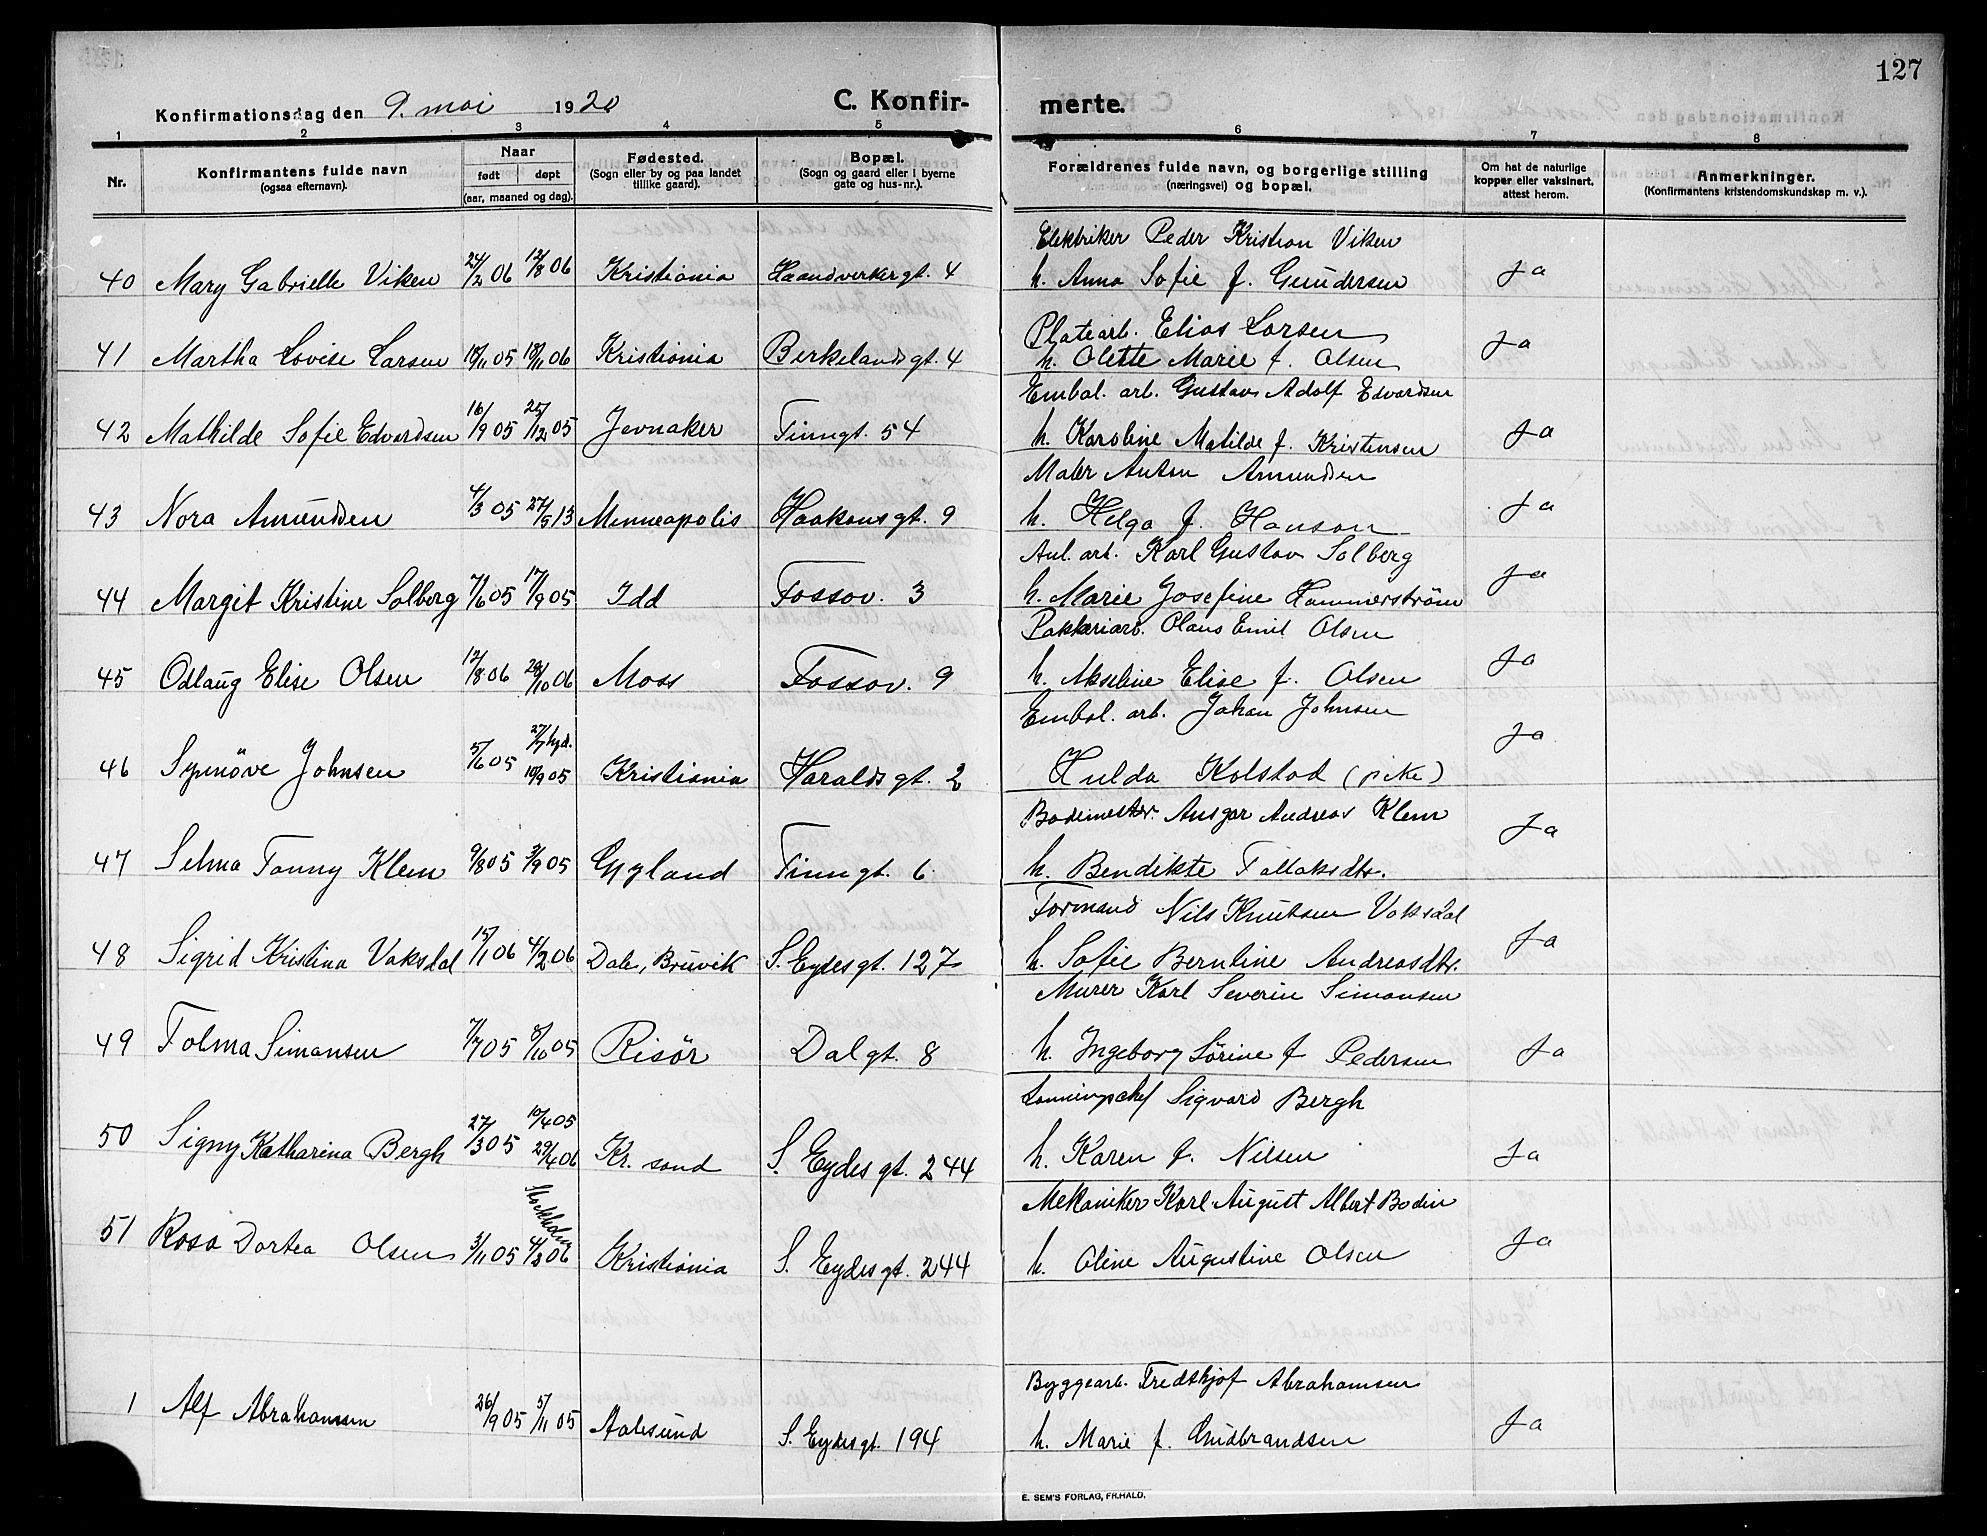 127
Konfirmationsdag den 9. mai 1920
C. Konfir- merte.
1 2 3 4 5 6 7 8
Nr.
Konfirmantens fulde navn (ogsaa efternavn).
Naar født døpt (aar, maaned og dag).
Fødested. (Sogn eller by og paa landet tillike gaard).
Bopæl. (Sogn og gaard eller i byerne gate og hus-nr.).
Forældrenes fulde navn, og borgerlige stilling (næringsvei) og bopæl.
Om hat de naturlige kopper eller vaksinert, attest herom.
Anmerkninger. (Konfirmantens kristendomskundskap m. v.).
Elektriker Peder Kristian Viken
40 Mary Gabrielle Viken 24/2 06 12/8 06 Kristiania Haandverkergt. 4 h. Anna Sofie f. Gundersen Ja
Platearb. Elias Larsen
41 Martha Lovise Larsen 18/11 05 18/11 06 Kristiania Berkelandsgt. 4 h. Olette Marie f. Olsen Ja
Embal. arb. Gustav Adolf Edvardsen
42 Mathilde Sofie Edvardsen 16/9 05 25/12 05 Jevnaker Finngt. 54 h. Karoline Matilde f. Kristensen Ja
Maler Anton Amundsen
43 Nora Amundsen 4/3 05 27/5 13 Minneapolis Haakonsgt. 9 h. Helga f. Hanson Ja
Anl. arb. Karl Gustav Solberg
44 Margit Kristine Solberg 7/6 05 17/9 05 Idd Fossov. 3 h. Marie Josefine Hammerström Ja
Pakkeriarb. Olaus Emil Olsen
45 Odlaug Elise Olsen 12/8 06 28/10 06 Moss Fossov. 9 h. Akseline Elise f. Olsen Ja
Embal. arb. Johan Johnsen
27/7 hjd.
46 Synnöve Johnsen 5/6 05 10/9 05 Kristiania Haraldsgt. 2 Hulda Kolstad (pike) Ja
Bademester. Ansgar Andreas Klem
47 Selma Fanny Klem 9/8 05 3/9 05 Gyland Finngt. 6 h. Bendikte Tallaksdtr. Ja
Formand Nils Knutsen Vaksdal
48 Sigrid Kristina Vaksdal 15/1 06 4/2 06 Dale, Bruvik S. Eydesgt. 127 h. Sofie Berntine Andreasdtr. Ja
Murer Karl Severin Simonsen
49 Tolma Simonsen 7/7 05 8/10 05 Risör Dalgt. 8 h. Ingeborg Sörine f Pedersen Ja
Sigvard Bergh
10/4 05
50 Signy Katharina Bergh 27/3 05 29/4 06 Kr. sand S. Eydesgt. 244 h. Karen f. Nilsen Ja
Stockholm
Mekaniker Karl August Albert Bodin
51 Rosa Dortea Olsen 3/11 05 4/2 06 Kristiania S. Eydesgt. 244 h. Oline Augustine Olsen Ja
Byggearb. Fredthjof Abrahamsen
1 Alf Abrahamsen 26/9 05 5/11 05 Aalesund S. Eydesgt. 194 h. Marie f. Gudbrandsen Ja
E. SEM'S FORLAG, FR.HALD.